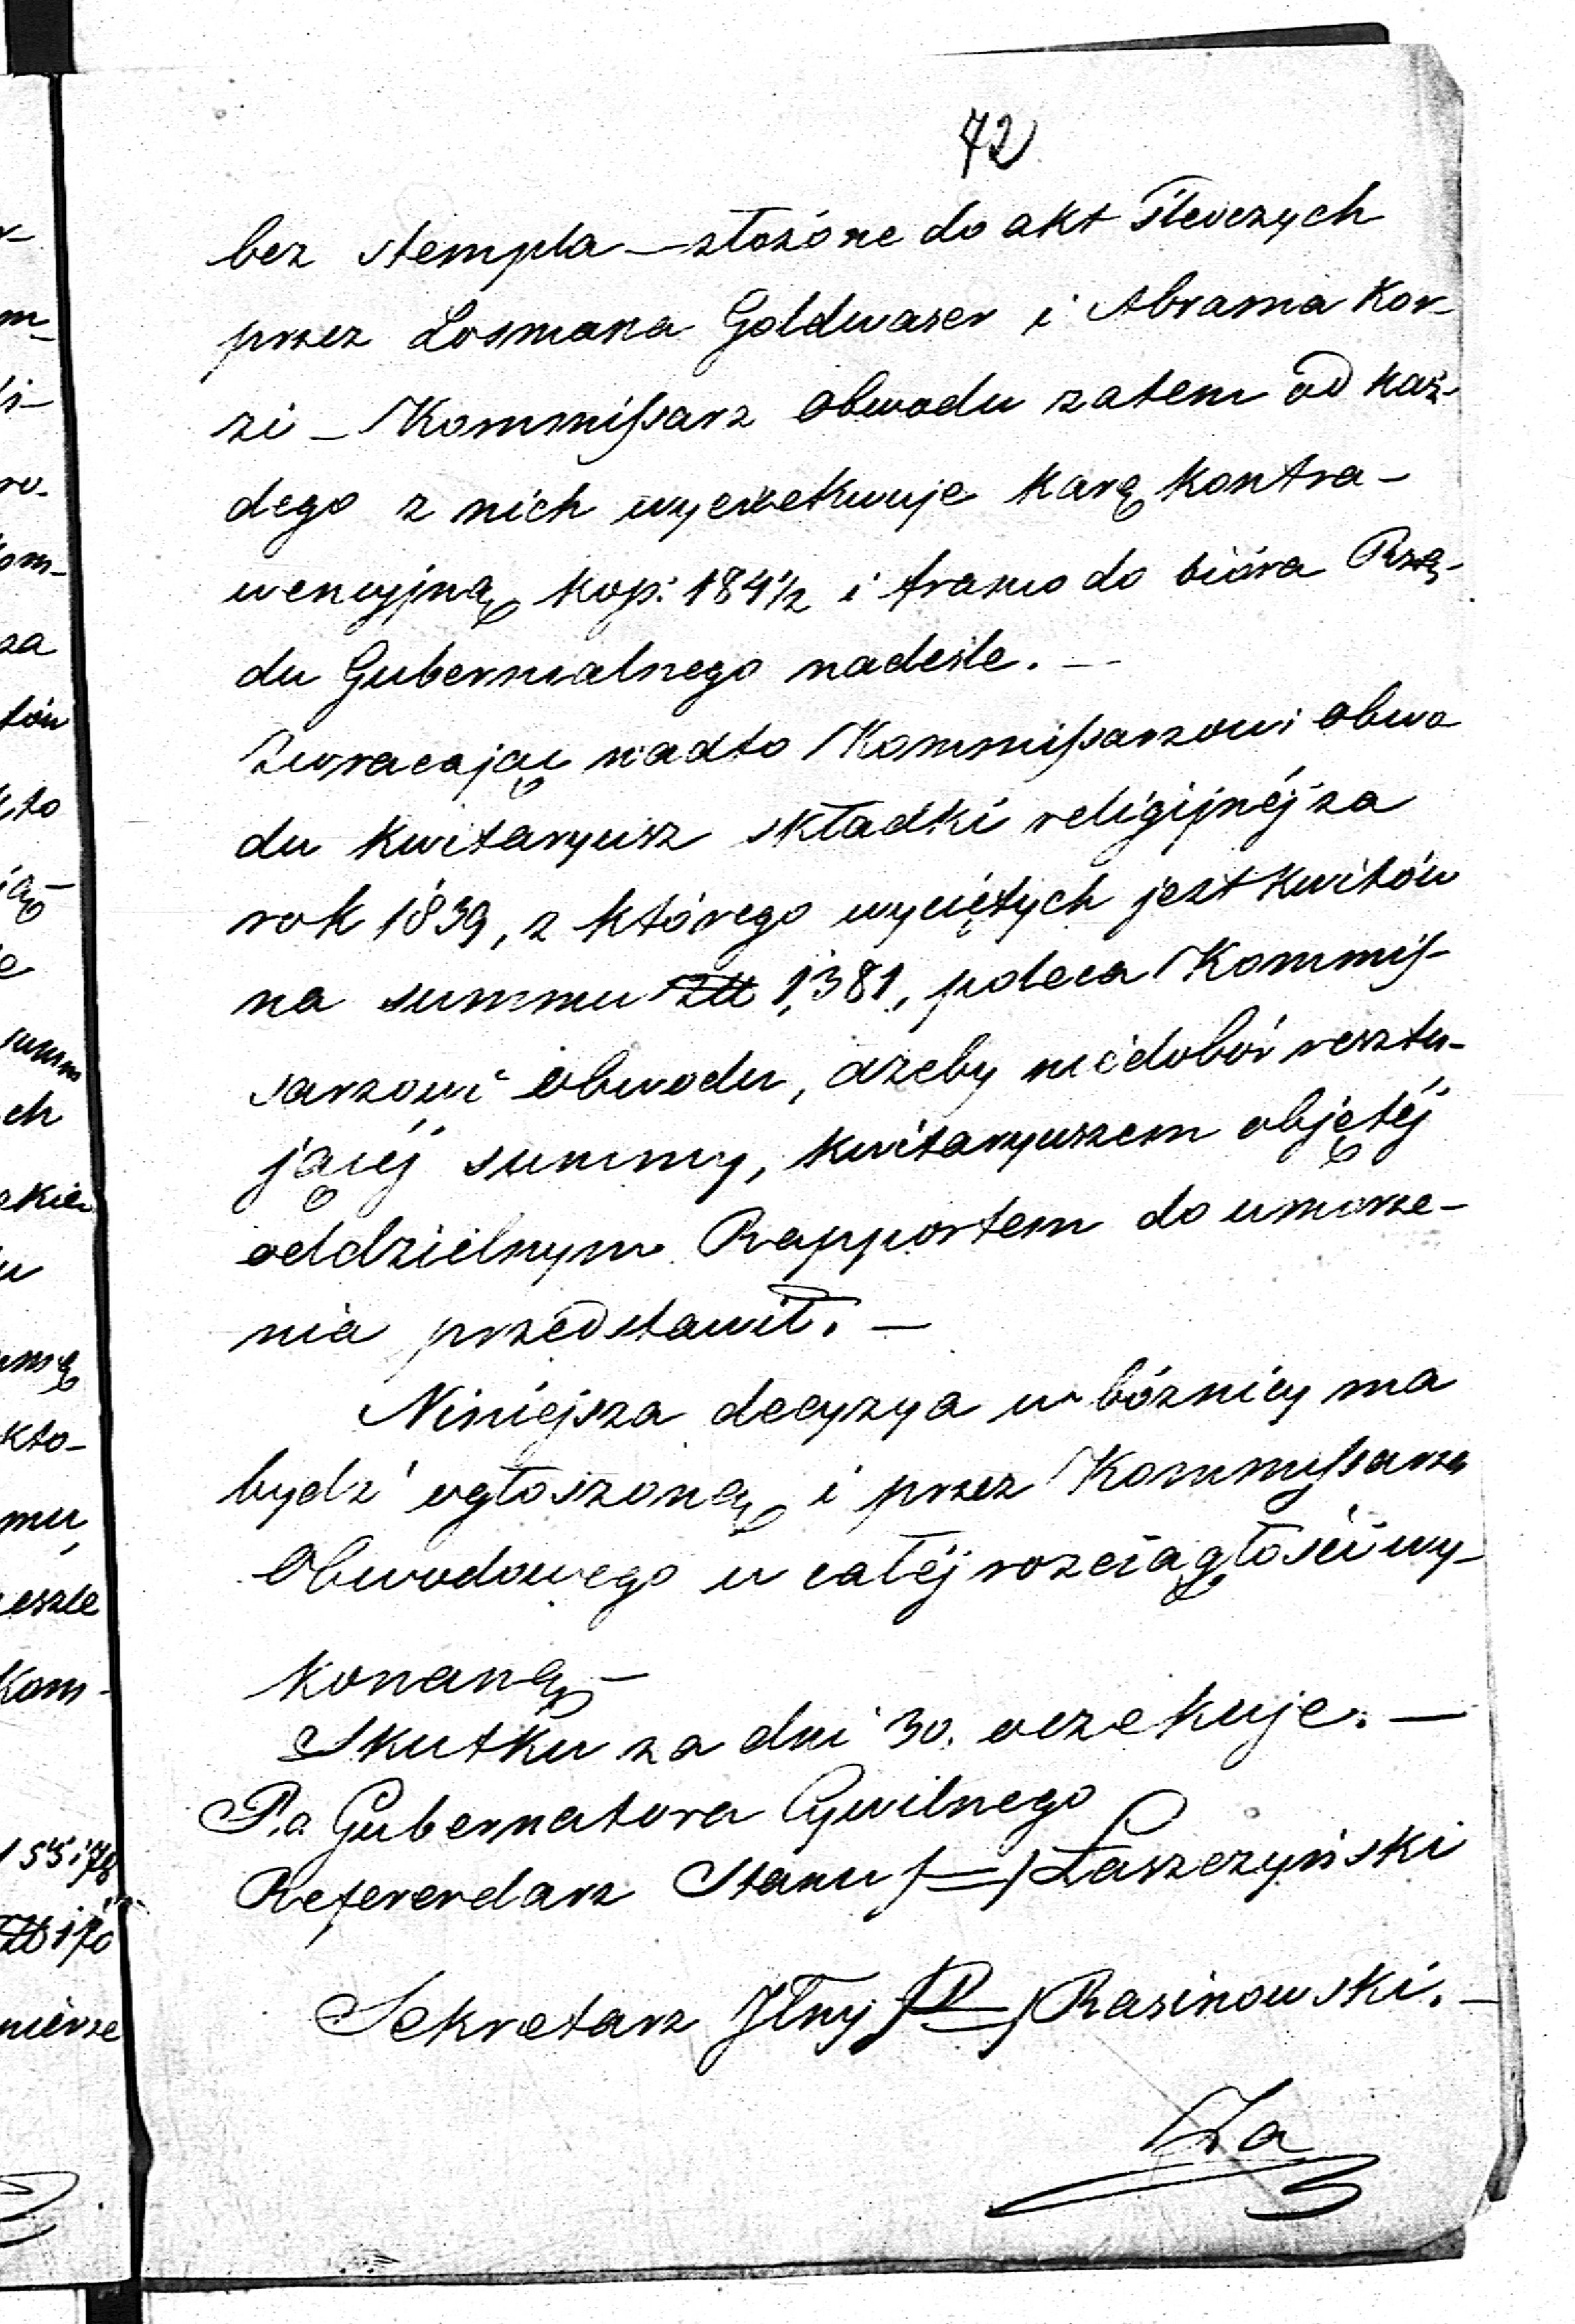 72
bez stempla – złożone do akt Śledczych
przez Losmana Goldwaser i Abrama Kor-
zi – Kommissarz obwodu zatem od każ-
dego z nich wyexekwuje karę kontra-
wencyjną kop: 184½ i franco do bióra Rzą-
du Gubernialnego nadeśle. –
Zwracając nadto Kommissarzowi obwo
du kwitaryusz składki religijnéj za
rok 1839, z którego wyciętych jest kwitów
na summu Złł 1,381, poleca Kommis-
sarzowi obwodu, ażeby niedobór resztu-
jącéj summy, kwitaryuszem objętéj
oddzielnym Rapportem do umorze-
nia przedstawił. –
Niniejsza decyzya w bóżnicy ma
bydź ogłoszoną i przez Kommyssarza
Obwodowego w całéj rozciągłości wy-
konaną –
Skutku za dni 30. oczekuje. –
P.o Gubernatora Cywilnego
Referendarz Stanu /=/ Łaszczyński
Sekretarz Jlny /=/ Rasinowski. –
Za
m-
ro-
om-
za
tów
kto
summ
ch
kto-
mu,
Kom-
155 i 78
Złł 170
mierze